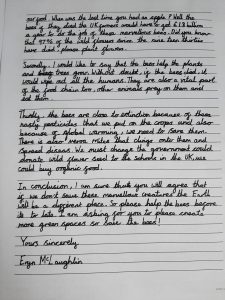 our food. When was the last time you had an apple? Well the
bees if they died the UK government would have to get £1.8 billion
a year to do the job of these marvellous bees. Did you know
that 97% of the wild flowers since the nine teen thirties
have died, please plant flowers.
Secondly, I would like to say that the bees help the plants
and trees grow. Without doubt, if the bees died, it
would wipe out all the humans. They are also a vital part
of the food chain too, other animals prey on them and
eat them.
Thirdly, the bees are close to extinction because of these
nasty pesticides that we put on the crops and also
because of global warming, we need to save them.
There is also verroa mites that clings onto them and
spread disease. We must change the government could
donate wild flower seed to the schools in the UK, we
could buy organic food.
In conclusion, I am sure you will agree that
if we don't save these marvellous creatures the Earth
will be a different place. So please help the bees before
its to late. I am asking for you to please create
more green spaces to save the bees!
Yours sincerely
Eryn McLaughlin